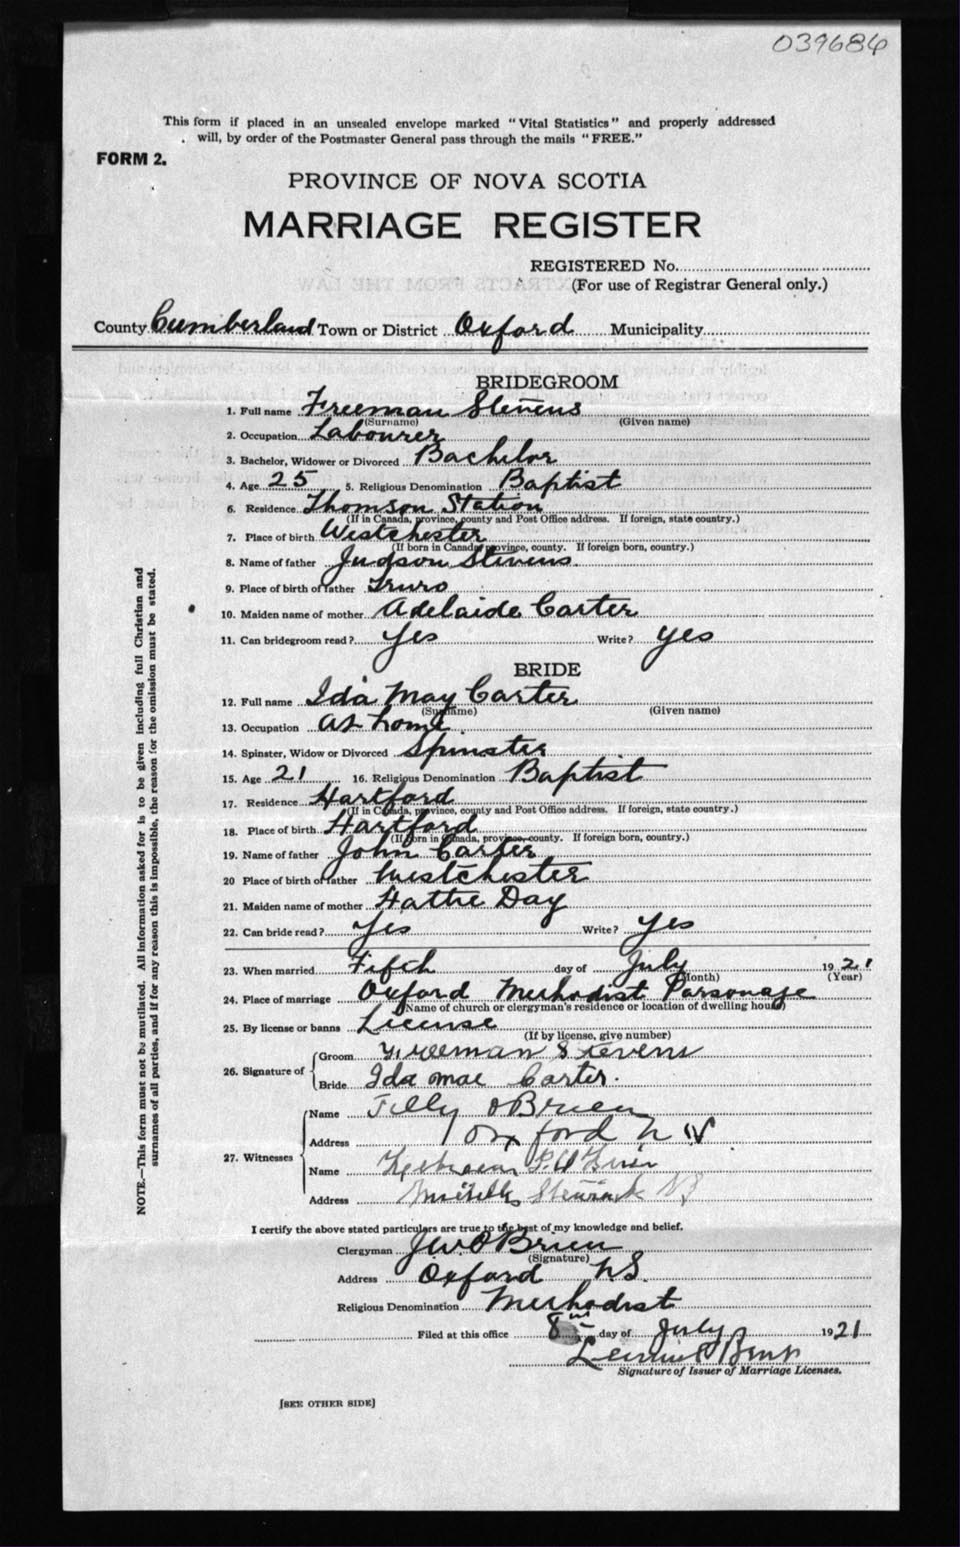 039686
This form if placed in an unsealed envelope marked "Vital Statistics" and properly addressed
will, by order of the Postmaster General pass through the mails "FREE."
FORM 2.
PROVINCE OF NOVA SCOTIA
MARRIAGE REGISTER
REGISTERED No.
(For use of Registrar General only.)
County Cumberland Town or District Oxford Municipality
BRIDEGROOM
1. Full name Freeman Stevens
(Surname) (Given name)
2. Occupation Labourer
3. Bachelor, Widower or Divorced Bachelor
4. Age 25 5. Religious Denomination Baptist
6. Residence Thomson Station
(If in Canada, province, county and Post Office address. If foreign, state country.)
7. Place of birth Westchester
(If born in Canada, province, county. If foreign born, country.)
8. Name of father Judson Stevens
9. Place of birth of father Truro
10. Maiden name of mother Adelaide Carter
11. Can bridegroom read? Yes Write? Yes
BRIDE
12. Full name Ida May Carter
(Surname) (Given name)
13. Occupation at home
14. Spinster, Widow or Divorced Spinster
15. Age 21 16. Religious Denomination Baptist
17. Residence Hartford
(If in Canada, province, county and Post Office address. If foreign, state country.)
18. Place of birth Hartford
(If born in Canada, province, county. If foreign born, country.)
19. Name of father John Carter
20 Place of birth of father Westchester
21. Maiden name of mother Hattie Day
22. Can bride read? Yes Write? Yes
23. When married Fifth day of July 1921
(Month) (Year)
24. Place of marriage Oxford Methodist Parsonage
(Name of church or clergyman's residence or location of dwelling house)
25. By license or banns License
(If by license, give number)
26. Signature of
Groom Freeman Stevens
Bride Ida Mae Carter.
27. Witnesses
Name Tilly O'Brien
Address Oxford N
Name
Address
I certify the above stated particulars are true to the best of my knowledge and belief.
Clergyman J W O'Brien
(Signature)
Address Oxford N.S.
Religious Denomination Methodist
Filed at this office 8th day of July 1921
Signature of Issuer of Marriage Licenses.
[SEE OTHER SIDE]
NOTE.—This form must not be mutilated. All information asked for is to be given including full Christian and
surnames of all parties, and if for any reason this is impossible, the reason for the omission must be stated.